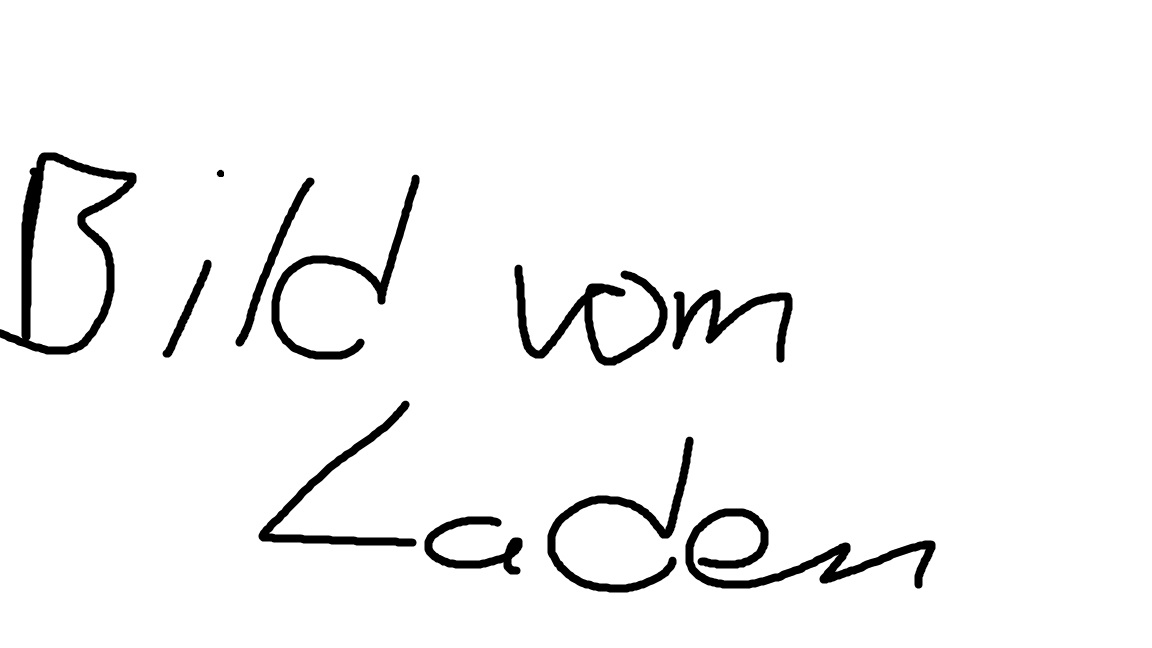 Bild vom
Laden